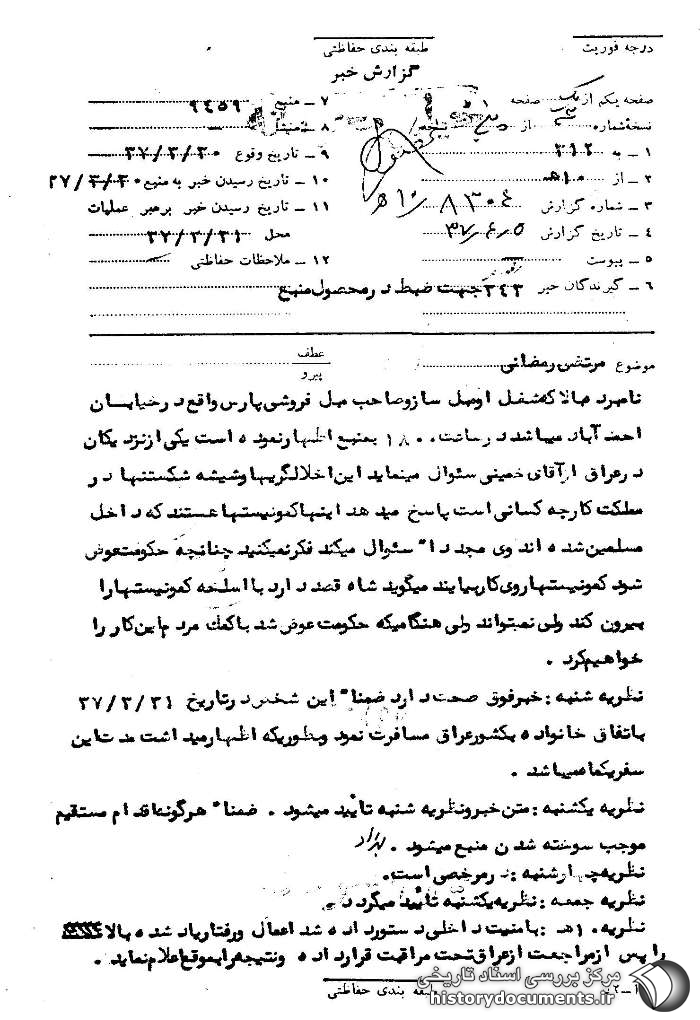 درجه فوریت طبقه بندی حفاظتی
گزارش خبر
صفحه یکم از یک صفحه
نسخه شماره ۳ از نسخه
۱ ـ به ۳۱۲
۲ ـ از ۱۰ هـ
۳ ـ شماره گزارش ۸۳۰۴ /۱۰ هـ
۴ ـ تاریخ گزارش ۳۷/۴/۵
۵ ـ پیوست
۶ ـ گیرندگان خبر ۳۴۳ جهت ضبط در محصول منبع
۷ ـ منبع ۹۴۵۹
۸ ـ منشأ
۹ ـ تاریخ وقوع ۳۷/۳/۳۰
۱۰ ـ تاریخ رسیدن خبر به منبع ۳۷/۳/۳۰
۱۱ ـ تاریخ رسیدن خبر برهبر عملیات
محل ۳۷/۳/۳۱
۱۲ ـ ملاحظات حفاظتی
موضوع مرتضی رمضانی
عطف
پیرو
نامبرده بالا که شغل اومبل ساز و صاحب مبل فروشی پارس واقع در خیابان
احمد آباد میباشد در ساعت ۱۸۰۰ بمنبع اظهار نموده است یکی از نزدیکان
در عراق از آقای خمینی سئوال مینماید این اخلالگریها و شیشه شکستنها در
مملکت کار چه کسانی است پاسخ میدهد اینها کمونیستها هستند که داخل
مسلمین شده اند وی مجدداً سئوال میکند فکر نمیکنید چنانچه حکومت عوض
شود کمونیستها روی کار بیایند میگوید شاه قصد دارد با اسلحه کمونیستها را
بیرون کند ولی نمیتواند ولی هنگامیکه حکومت عوض شد با کمک مردم این کار را
خواهیم کرد .
نظریه شنبه : خبر فوق صحت دارد ضمناً این شخص در تاریخ ۳۷/۳/۳۱
باتفاق خانواده بکشور عراق مسافرت نمود و بطوریکه اظهار میداشت مدت این
سفر یکماه میباشد .
نظریه یکشنبه : متن خبر و نظریه شنبه تأیید میشود . ضمناً هرگونه اقدام مستقیم
موجب سوخته شدن منبع میشود . بهزاد
نظریه چهارشنبه : در مرخصی است .
نظریه جمعه : نظریه یکشنبه تأیید میگردد
نظریه ۱۰ هـ : بامنیت داخلی دستور داده شد اعمال و رفتار یاد شده بالا
را پس از مراجعت از عراق تحت مراقبت قرار داده و نتیجه را بموقع اعلام نماید .
طبقه بندی حفاظتی
مرکز بررسی اسناد تاریخی
historydocuments.ir